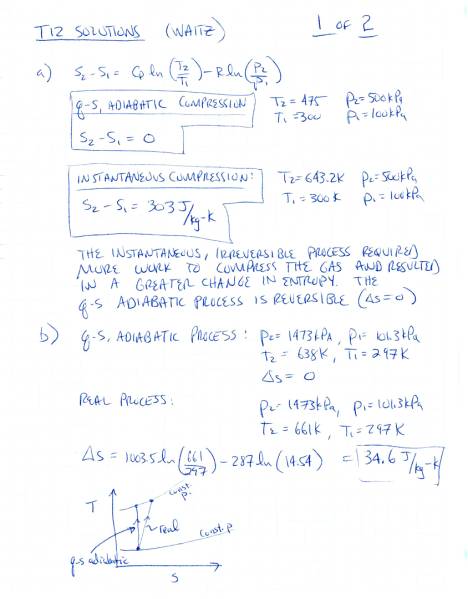 T12 SOLUTIONS (WAITZ) 1 OF 2
a) S₂-S₁ = Cp ln (T₂/T₁) - R ln (P₂/P₁)
q-S, ADIABATIC COMPRESSION T₂ = 475 p₂ = 500kPa
S₂-S₁ = 0 T₁ = 300 p₁ = 100kPa
INSTANTANEOUS COMPRESSION: T₂ = 643.2K p₂ = 500kPa
S₂-S₁ = 303 J/kg-K T₁ = 300K p₁ = 100kPa
THE INSTANTANEOUS, IRREVERSIBLE PROCESS REQUIRED
MORE WORK TO COMPRESS THE GAS AND RESULTED
IN A GREATER CHANGE IN ENTROPY. THE
q-S ADIABATIC PROCESS IS REVERSIBLE (ΔS=0)
b) q-S, ADIABATIC PROCESS: P₂ = 1473kPA, P₁ = 101.3kPa
T₂ = 638K, T₁ = 297K
ΔS = 0
REAL PROCESS: P₂ = 1473kPa, p₁ = 101.3kPa
T₂ = 661K, T₁ = 297K
ΔS = 1003.5 ln (661/297) - 287 ln (14.54) = 34.6 J/kg-K
const. p.
T
real
const. p.
q-s adiabatic
S